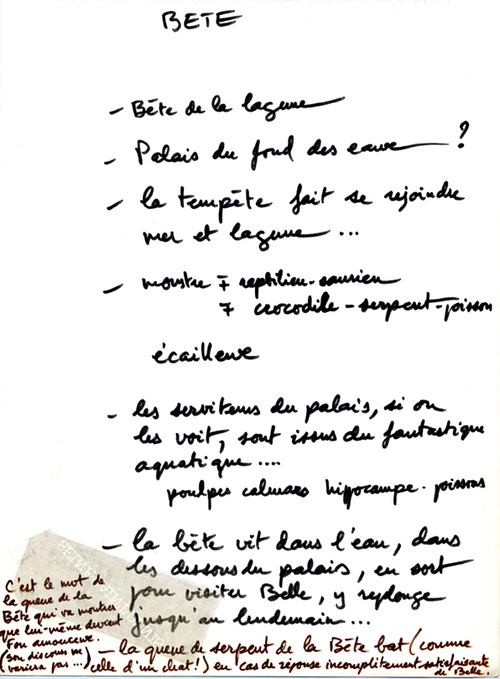 BETE
- Bête de la lagune
- Palais du fond des eaux ?
- la tempête fait se rejoindre
mer et lagune ...
- monstre ∓ reptilien-saurien
∓ crocodile - serpent-poisson
écailleux
- les serviteurs du palais, si on
les voit, sont issus du fantastique
aquatique ....
poulpes calmars hippocampe. poissons
- la bête vit dans l'eau, dans
les dessous du palais, en sort
pour visiter Belle, y replonge
jusqu'au lendemain ...
C'est le mot de
la queue de la
Bête qui va montrer
que lui-même devient
amoureux.
(son discours ne
variera pas ...)
- la queue de serpent de la Bête bat (comme
celle d'un chat !) en cas de réponse incomplètement satisfaisante
de Belle.